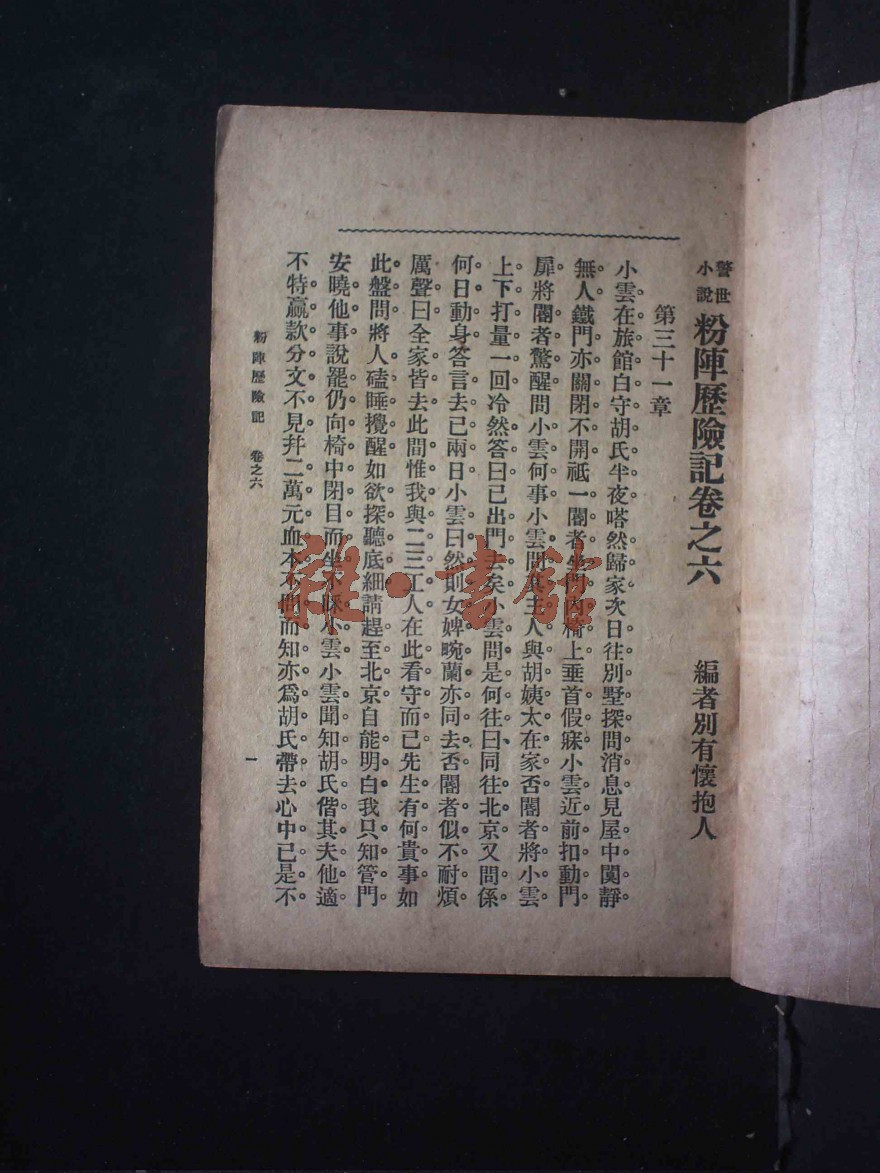 警世小說 粉陣歷險記卷之六 編者別有懷抱人
第三十一章
小雲在旅館白守胡氏半夜嗒然歸家次日往別墅探問消息見屋中闃靜
無人鐵門亦關閉不開祗一閽者坐門內椅上垂首假寐小雲近前扣動門
扉將閽者驚醒問小雲何事小雲問其主人與胡姨太在家否閽者將小雲
上下打量一回冷然答曰已出門去矣小雲問是何往曰同往北京又問係
何日動身答言去已兩日小雲曰然則女婢畹蘭亦同去否閽者似不耐煩
厲聲曰全家皆去此間惟我與二三工人在此看守而已先生有何貴事如
此盤問將人磕睡攪醒如欲探聽底細請趕至北京自能明白我只知管門
安曉他事說罷仍向椅中閉目而坐不睬小雲小雲聞知胡氏偕其夫他適
不特贏款分文不見幷二萬元血本不問而知亦爲胡氏帶去心中已是不
粉陣歷險記 卷之六
一
雅·書館